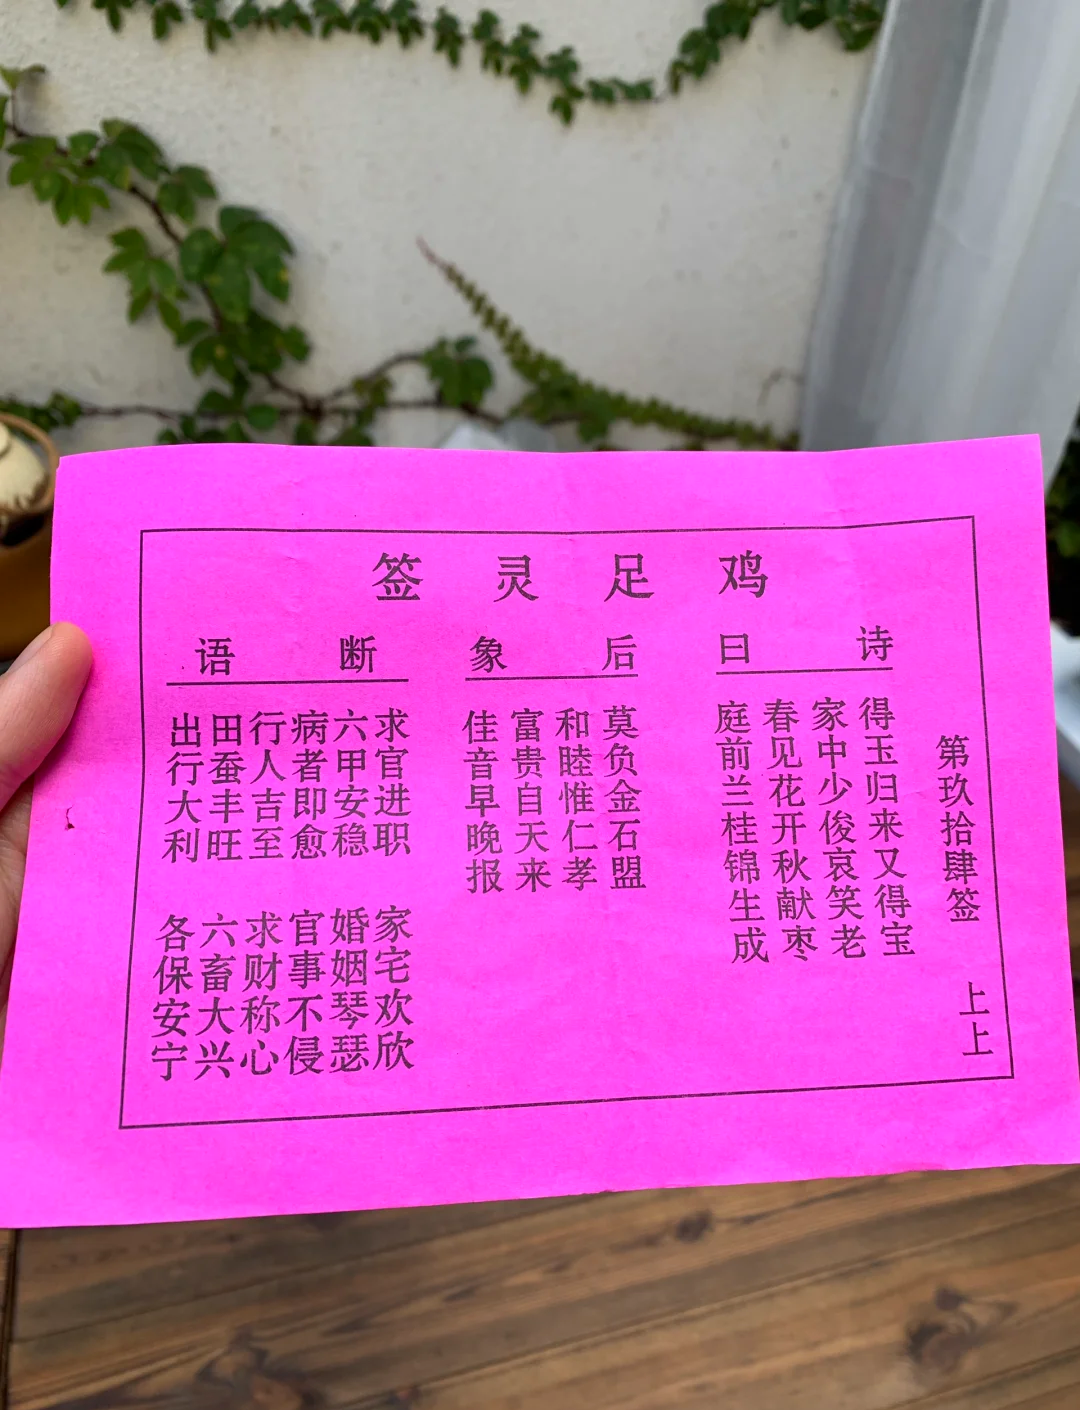 鸡足灵签
第玖拾肆签 上上
诗曰
得玉归来又得宝
家中少俊哀笑老
春见花开秋献枣
庭前兰桂锦生成
后象
莫负金石盟
和睦惟仁孝
富贵自天来
佳音早晚报
断语
求官进职
六甲安稳
病者即愈
行人吉至
田蚕丰旺
出行大利
家宅欢欣
婚姻琴瑟
官事不侵
求财称心
六畜大兴
各保安宁